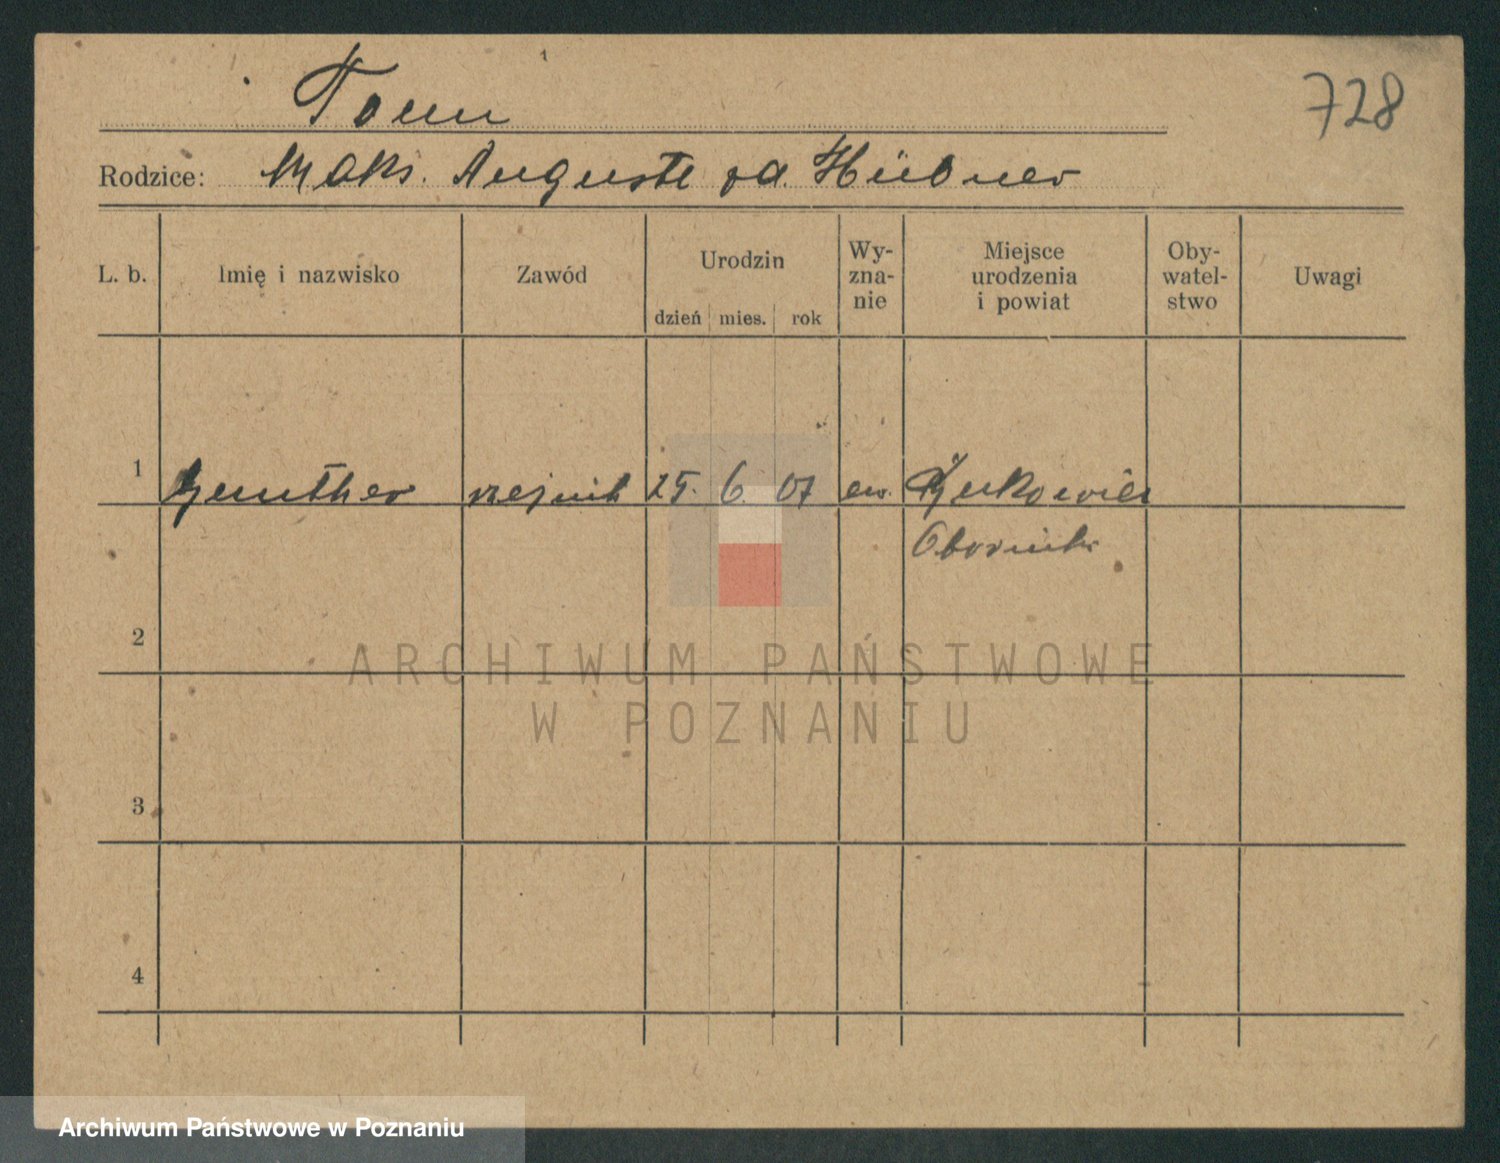 Tonn
728
Rodzice: Maks. Auguste zd. Hübner
L. b.
Imię i nazwisko
Zawód
Urodzin
dzień mies. rok
Wy-
zna-
nie
Miejsce
urodzenia
i powiat
Oby-
watel-
stwo
Uwagi
1 Guenther rzeźnik 25. 6. 07 ew.
Oborniki
2
3
4
ARCHIWUM PAŃSTWOWE
W POZNANIU
Archiwum Państwowe w Poznaniu